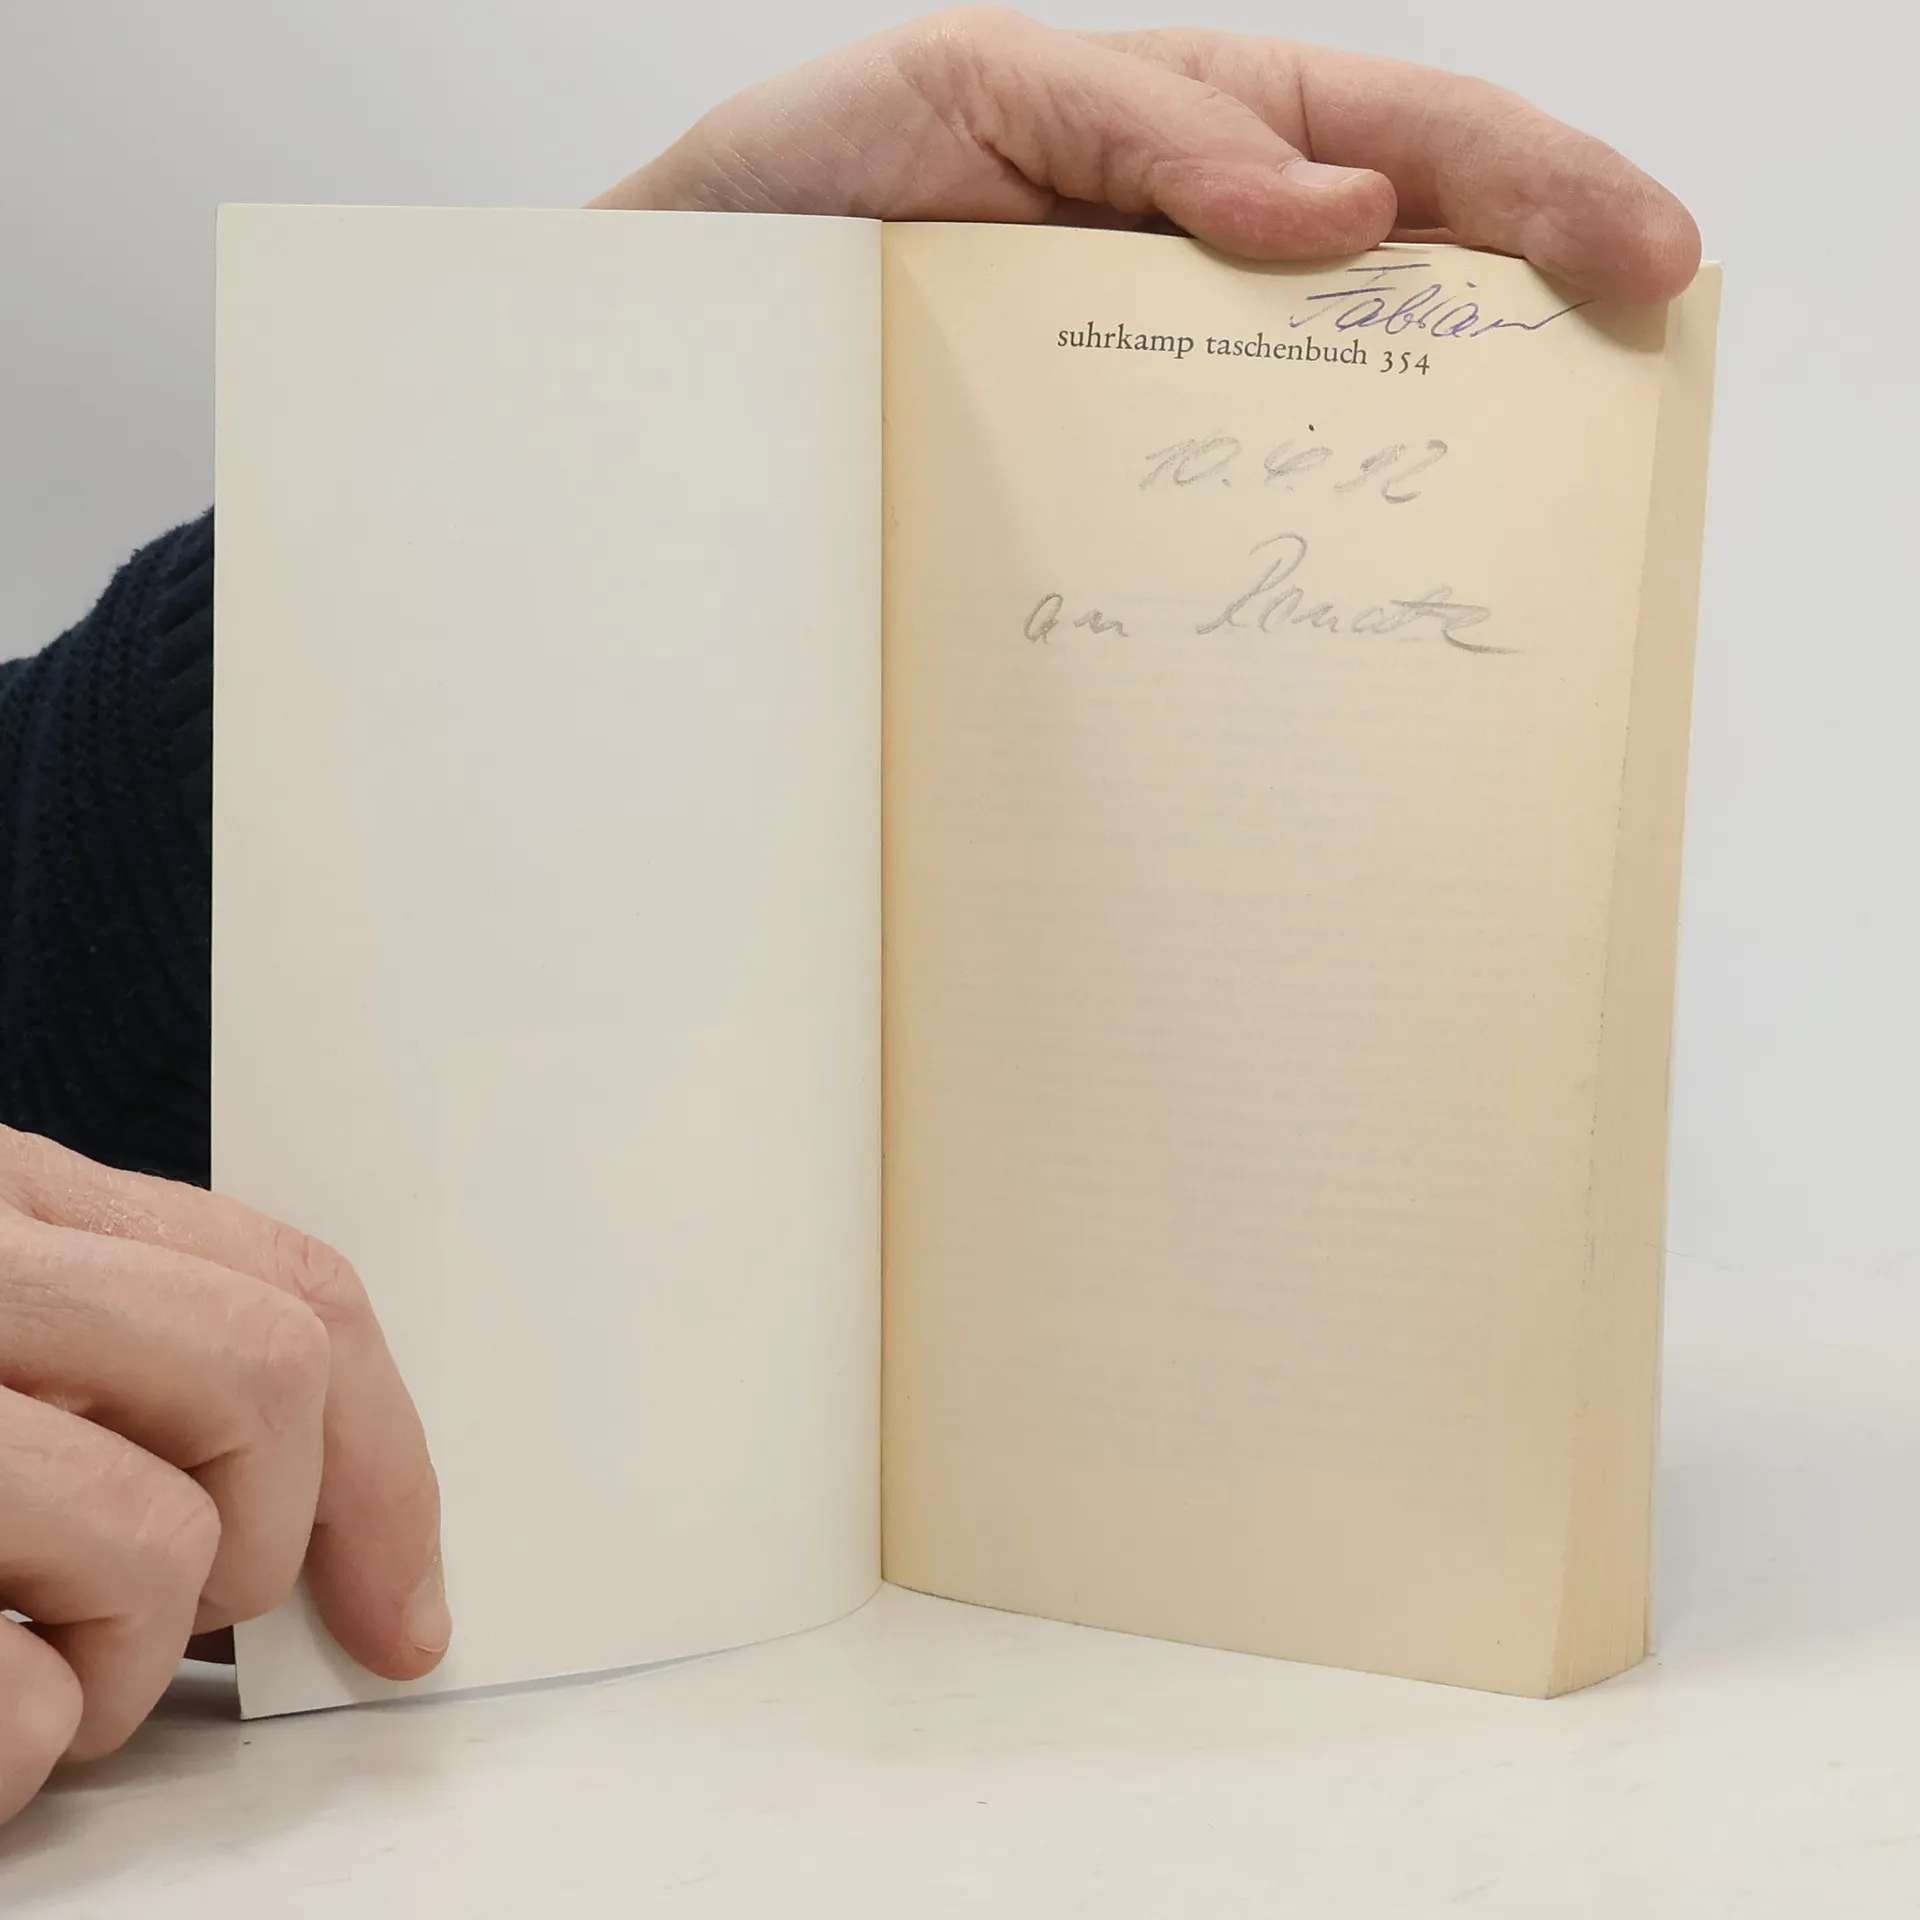 Fabian
suhrkamp taschenbuch 354
10.6.92
an Renate